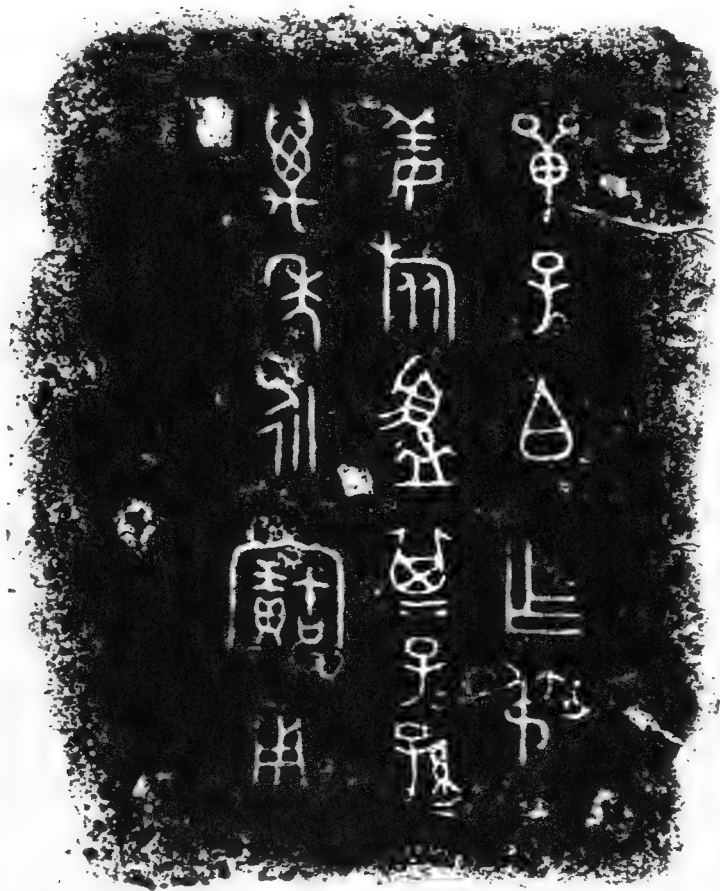 單子白乍弔
姜旅盨其子孫=
萬年永寶用